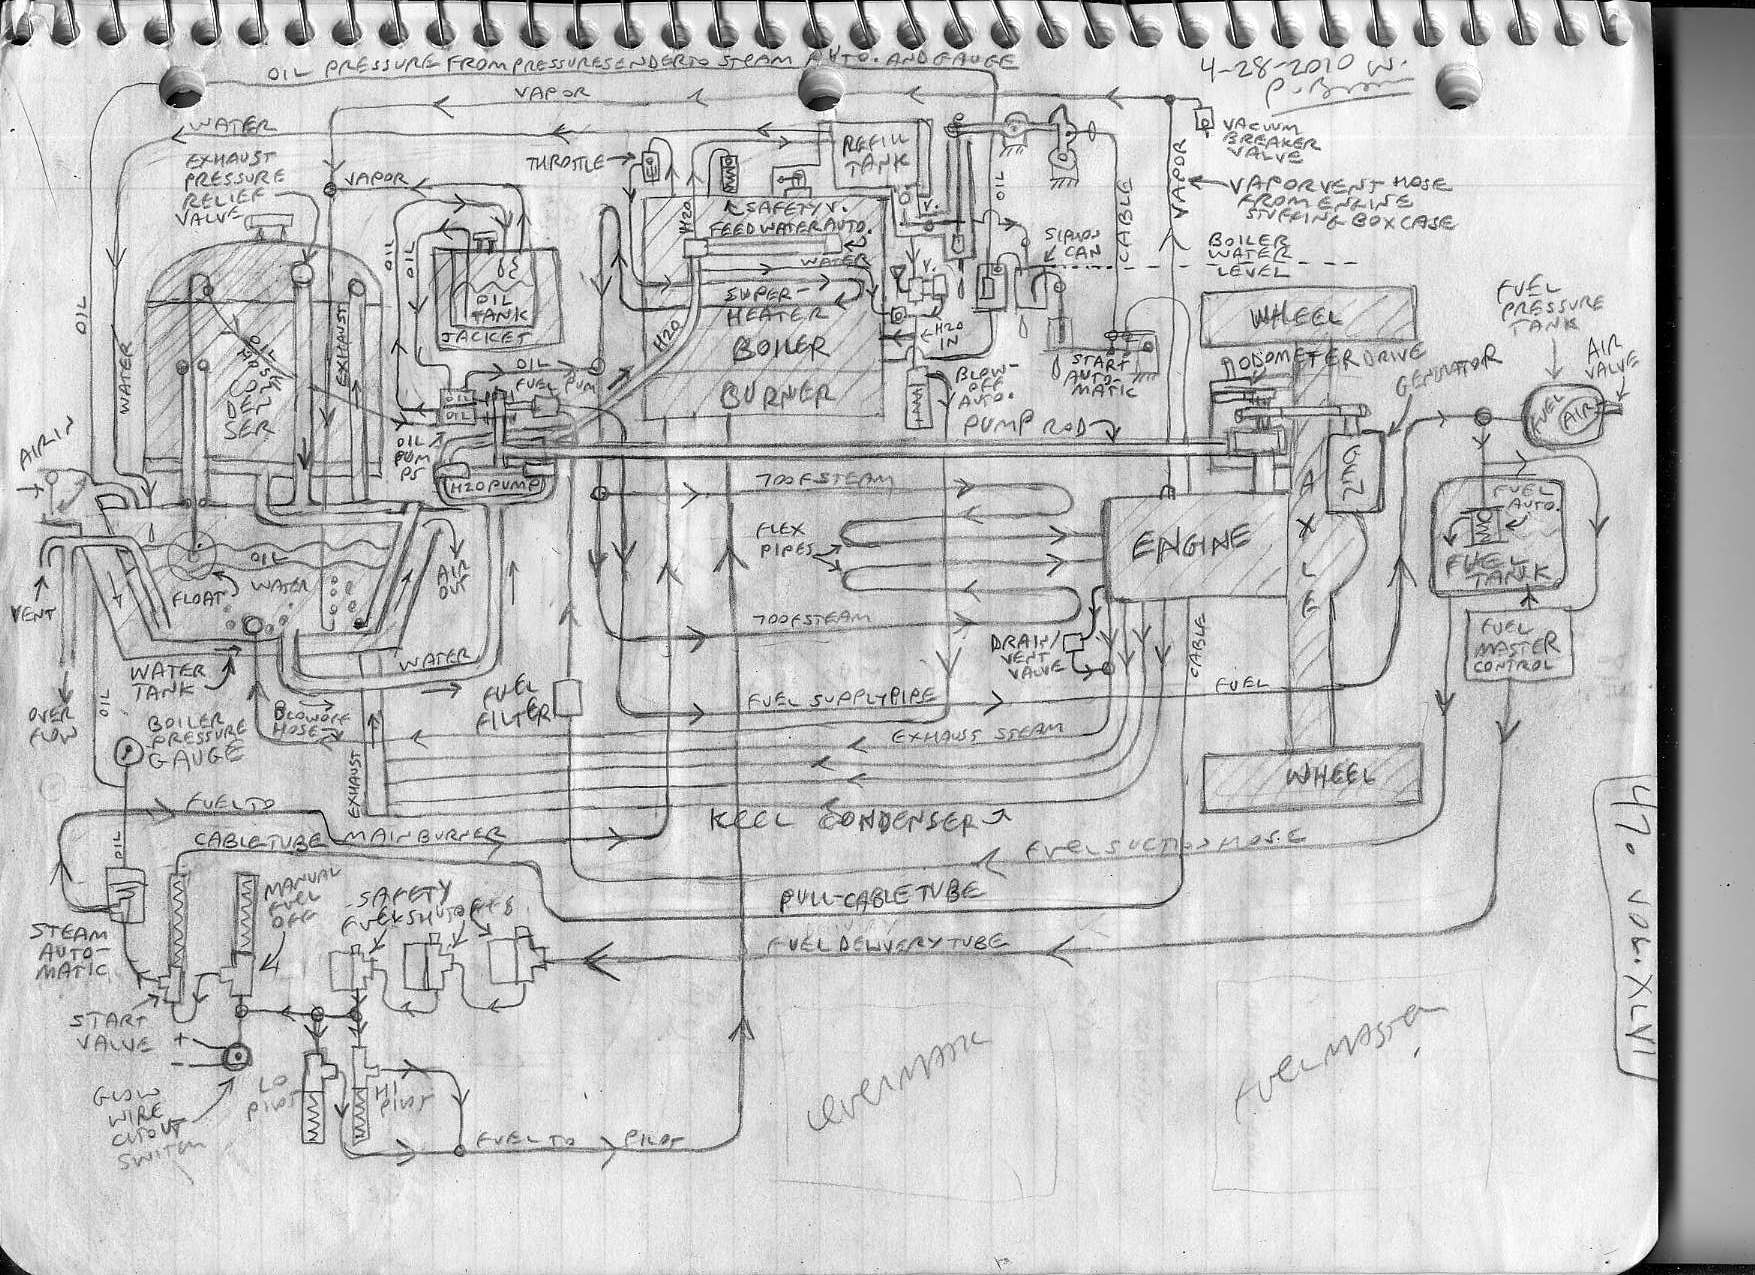 OIL PRESSURE FROM PRESSURE SENDER TO STEAM AUTO. AND GAUGE
4-28-2010 W.
VAPOR
WATER
EXHAUST
PRESSURE
RELIEF
VALVE
VAPOR
THROTTLE
REFILL
TANK
VACUUM
BREAKER
VALVE
VAPOR
VAPOR VENT HOSE
FROM ENGINE
STUFFING BOX CASE
OIL
CABLE
H2O
SAFETY V.
FEEDWATER AUTO.
WATER
V.
V.
SIPHON
CAN
BOILER
WATER
LEVEL
FUEL
PRESSURE
TANK
AIR
VALVE
OIL
OIL
OIL
TANK
JACKET
SUPER-
HEATER
BOILER
BURNER
H2O
H2O
IN
BLOW-
OFF
AUTO.
START
AUTO-
MATIC
WHEEL
ODOMETER DRIVE
GENERATOR
FUEL
AIR
OIL
WATER
EXHAUST
OIL
FUEL PUMP
OIL
OIL
OIL
PUMPS
H2O PUMP
PUMP ROD
GEN
AIR IN
700F STEAM
FLEX
PIPES
ENGINE
AXLE
FUEL
AUTO.
FUEL
TANK
VENT
OIL
WATER
FLOAT
AIR
OUT
700F STEAM
DRAIN/
VENT
VALVE
CABLE
FUEL
MASTER
CONTROL
WATER
TANK
WATER
OVER
FLOW
OIL
BOILER
PRESSURE
GAUGE
BLOWOFF
HOSE
FUEL
FILTER
FUEL SUPPLY PIPE
FUEL
EXHAUST STEAM
EXHAUST
WHEEL
KEEL CONDENSER
FUEL TO
MAIN BURNER
CABLE TUBE
FUEL SUCTION HOSE
OIL
MANUAL
FUEL
OFF
SAFETY
FUEL SHUTOFFS
PULL-CABLE TUBE
FUEL DELIVERY TUBE
STEAM
AUTO-
MATIC
START
VALVE
+
−
GLOW
WIRE
CUTOUT
SWITCH
LO
PILOT
HI
PILOT
FUEL TO PILOT
FUEL MASTER
47. VOL. XLVI